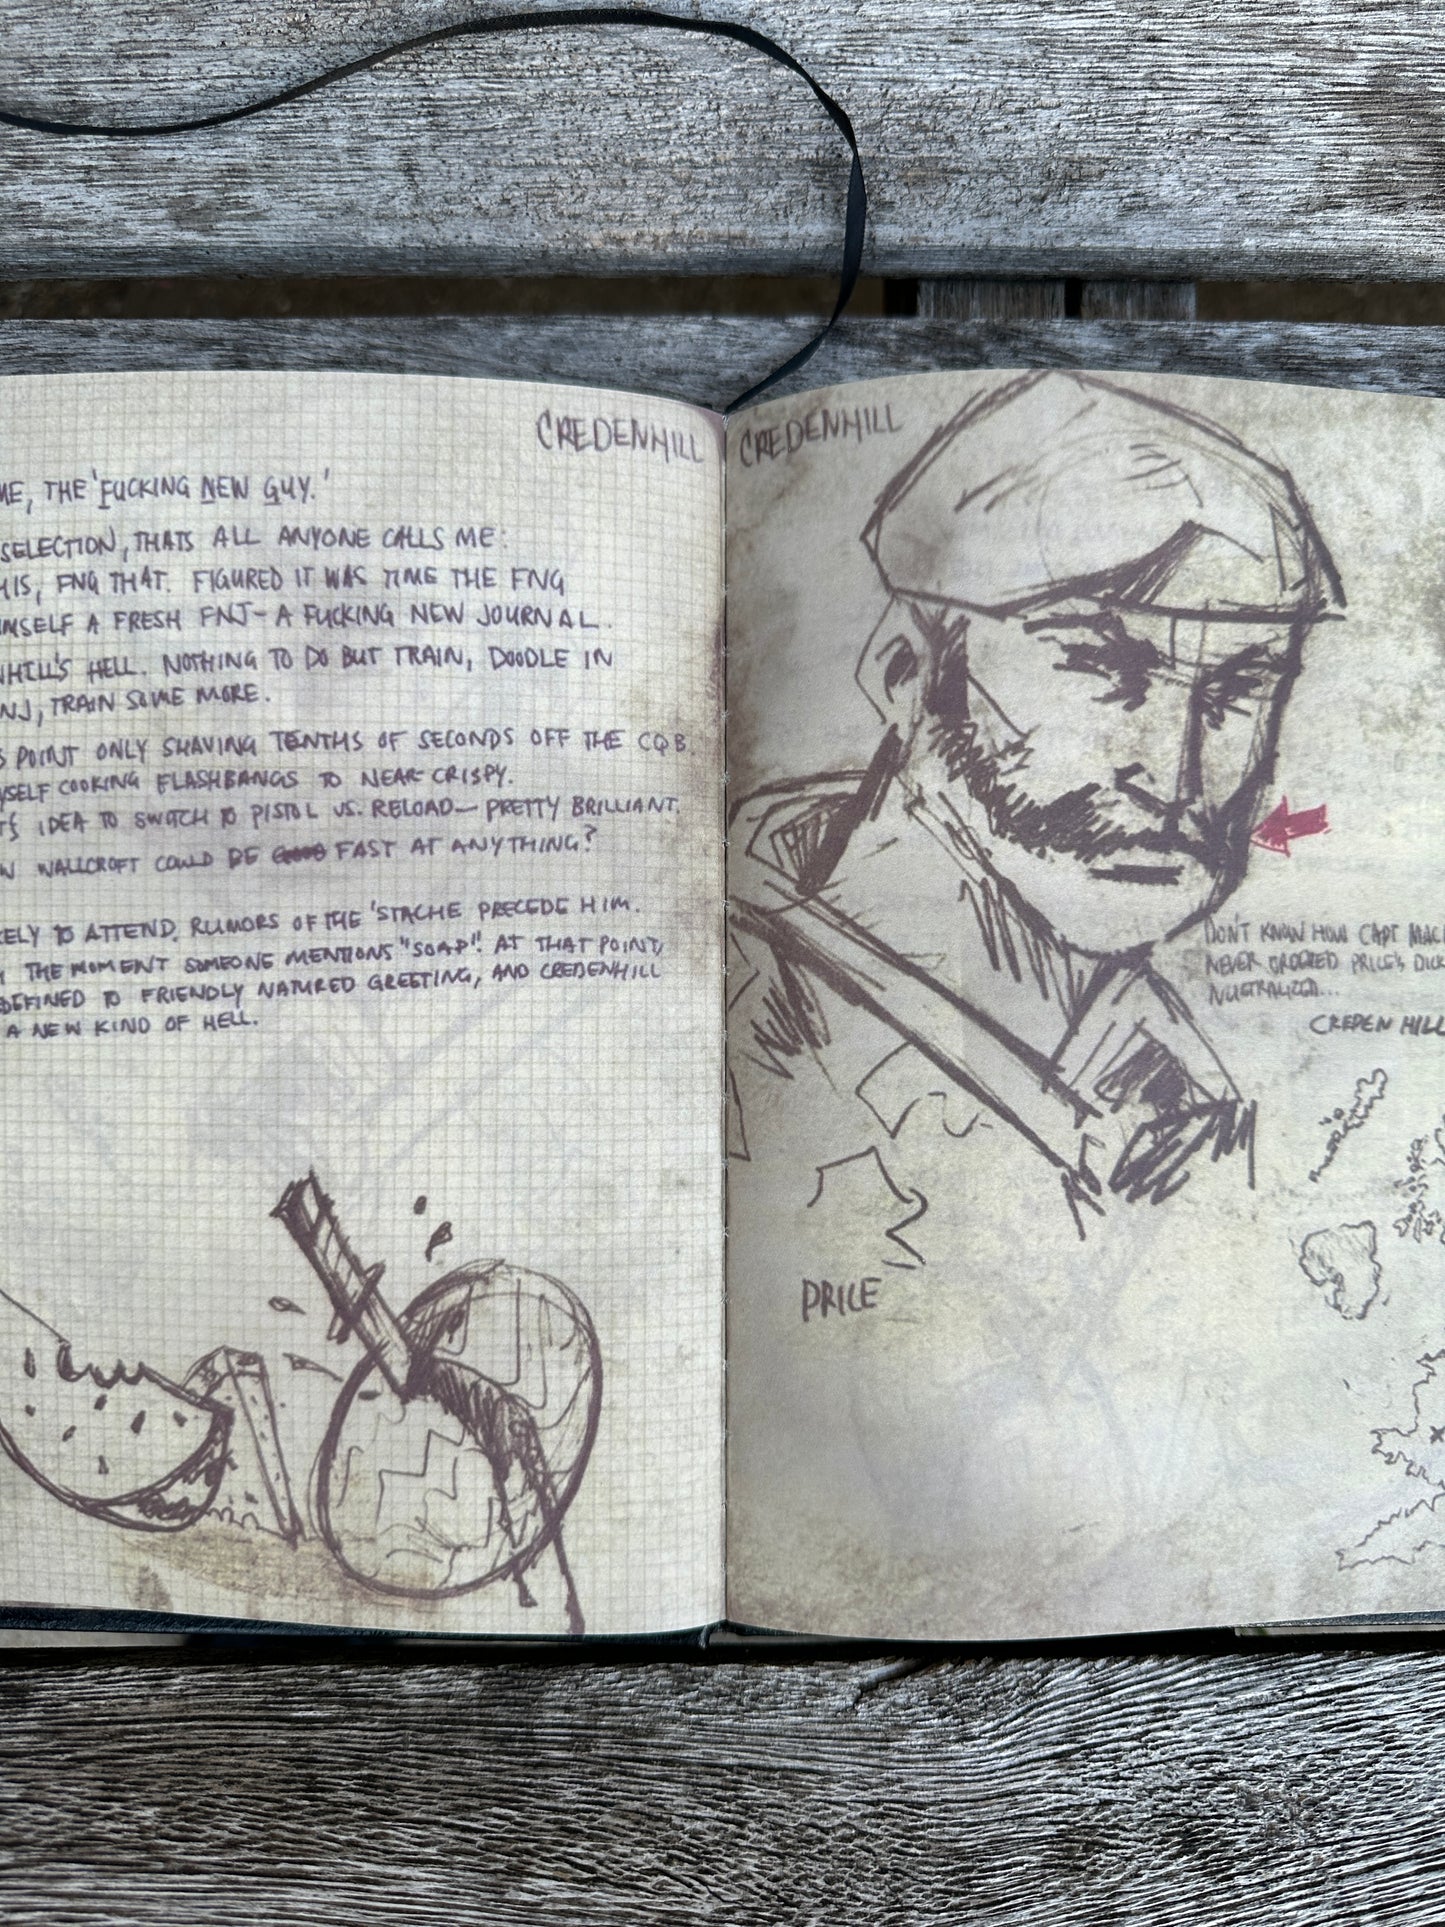 CREDENHILL
ME, THE 'FUCKING NEW GUY.'
SELECTION, THATS ALL ANYONE CALLS ME:
HIS, FNG THAT. FIGURED IT WAS TIME THE FNG
IMSELF A FRESH FNJ - A FUCKING NEW JOURNAL.
NHILL'S HELL. NOTHING TO DO BUT TRAIN, DOODLE IN
NJ, TRAIN SOME MORE.
S POINT ONLY SHAVING TENTHS OF SECONDS OFF THE CQB.
YSELF COOKING FLASHBANGS TO NEAR CRISPY.
T'S IDEA TO SWITCH TO PISTOL VS. RELOAD — PRETTY BRILLIANT.
W WALLCROFT COULD BE FAST AT ANYTHING?
ELY TO ATTEND. RUMORS OF THE 'STACHE PRECEDE HIM.
THE MOMENT SOMEONE MENTIONS "SOAP". AT THAT POINT,
DEFINED TO FRIENDLY NATURED GREETING, AND CREDENHILL
A NEW KIND OF HELL.
CREDENHILL
DON'T KNOW HOW CAPT MAC
NEVER ORDERED PRICE'S DICK
NUETRALIZED...
CREDEN HILL
PRICE